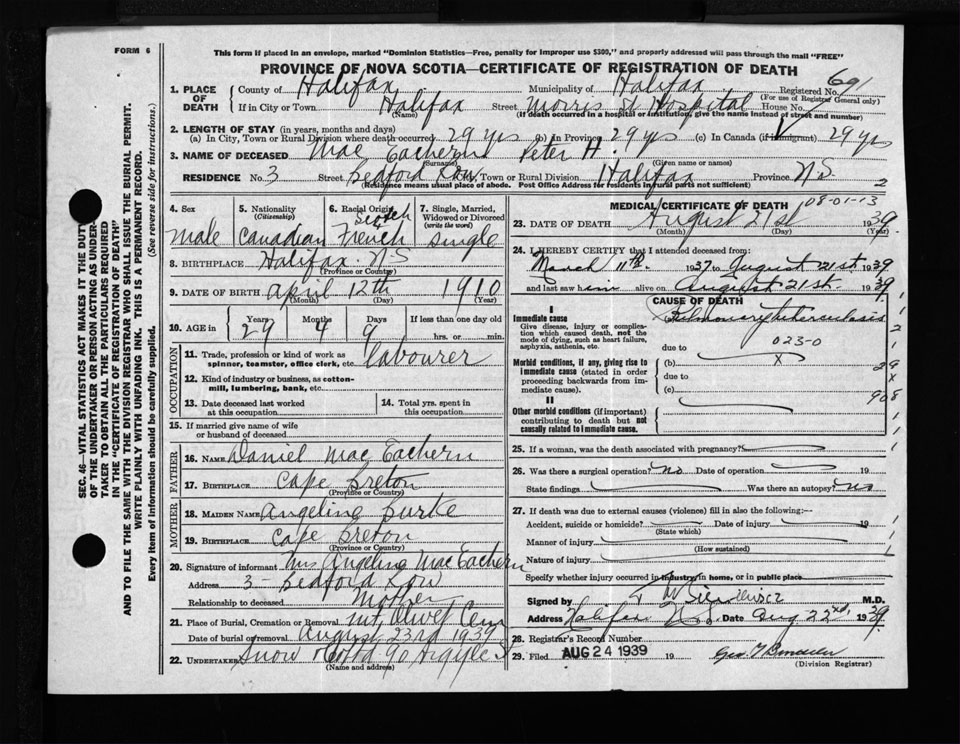 FORM 6
This form if placed in an envelope, marked "Dominion Statistics—Free, penalty for improper use $300," and properly addressed will pass through the mail "FREE"
PROVINCE OF NOVA SCOTIA—CERTIFICATE OF REGISTRATION OF DEATH
SEC. 46—VITAL STATISTICS ACT MAKES IT THE DUTY
OF THE UNDERTAKER OR PERSON ACTING AS UNDER-
TAKER TO OBTAIN ALL THE PARTICULARS REQUIRED
IN THE "CERTIFICATE OF REGISTRATION OF DEATH"
AND TO FILE THE SAME WITH THE DIVISION REGISTRAR WHO SHALL ISSUE THE BURIAL PERMIT.
WRITE PLAINLY WITH UNFADING INK. THIS IS A PERMANENT RECORD.
Every item of information should be carefully supplied. (See reverse side for instructions.)
1. PLACE OF DEATH County of Halifax Municipality of Halifax Registered No. 691
(For use of Registrar General only)
If in City or Town Halifax Street Morris St Hospital House No.
(Name) (If death occurred in a hospital or institution, give the name instead of street and number)
2. LENGTH OF STAY (in years, months and days)
(a) In City, Town or Rural Division where death occurred 29 yrs (b) In Province 29 yrs (c) In Canada (if immigrant) 29 yrs
3. NAME OF DECEASED Mac Eachern Peter H.
(Surname) (Given name or names)
RESIDENCE No. 3 Street Bedford Row City, Town or Rural Division Halifax Province N.S. 2
(Residence means usual place of abode. Post Office Address for residents in rural parts not sufficient)
4. Sex 5. Nationality (Citizenship) 6. Racial Origin 7. Single, Married, Widowed or Divorced (write the word)
Male Canadian Scotch French Single
8. BIRTHPLACE Halifax N.S
(Province or Country)
9. DATE OF BIRTH April 12th 1910
(Month) (Day) (Year)
10. AGE in Years Months Days If less than one day old
29 4 9 hrs. or min.
OCCUPATION
11. Trade, profession or kind of work as spinner, teamster, office clerk, etc. labourer
12. Kind of industry or business, as cotton-mill, lumbering, bank, etc.
13. Date deceased last worked at this occupation 14. Total yrs. spent in this occupation
15. If married give name of wife or husband of deceased
FATHER
16. NAME Daniel Mac Eachern
17. BIRTHPLACE Cape Breton
(Province or Country)
MOTHER
18. MAIDEN NAME Angeline Burke
19. BIRTHPLACE Cape Breton
(Province or Country)
20. Signature of informant Mrs Angeline Mac Eachern
Address 3 - Bedford Row
Relationship to deceased Mother
21. Place of Burial, Cremation or Removal Mt. Olivet Cem
Date of burial or removal August 23rd 1939
22. UNDERTAKER Snow & Co Ltd 90 Argyle St
(Name and address)
MEDICAL CERTIFICATE OF DEATH 08-01-13
23. DATE OF DEATH August 21st 1939
(Month) (Day) (Year)
24. I HEREBY CERTIFY that I attended deceased from:
March 11th 1937 to August 21st 1939
and last saw him alive on August 21st. 1939
CAUSE OF DEATH
I
Immediate cause Pulmonary tuberculosis
Give disease, injury or complication which caused death, not the mode of dying, such as heart failure, asphyxia, asthenia, etc.
due to 023-0
Morbid conditions, if any, giving rise to immediate cause (stated in order proceeding backwards from immediate cause).
(b) X
due to
(c)
II
Other morbid conditions (if important) contributing to death but not causally related to immediate cause.
1
2
1
29
X
908
25. If a woman, was the death associated with pregnancy?
26. Was there a surgical operation? No Date of operation 19
State findings Was there an autopsy? No
27. If death was due to external causes (violence) fill in also the following:—
Accident, suicide or homicide? Date of injury 19
(State which)
Manner of injury
(How sustained)
Nature of injury
Specify whether injury occurred in industry, in home, or in public place
Signed by M.D.
Address Halifax N.S. Date Aug 22nd. 1939.
28. Registrar's Record Number
29. Filed AUG 24 1939 19
(Division Registrar)